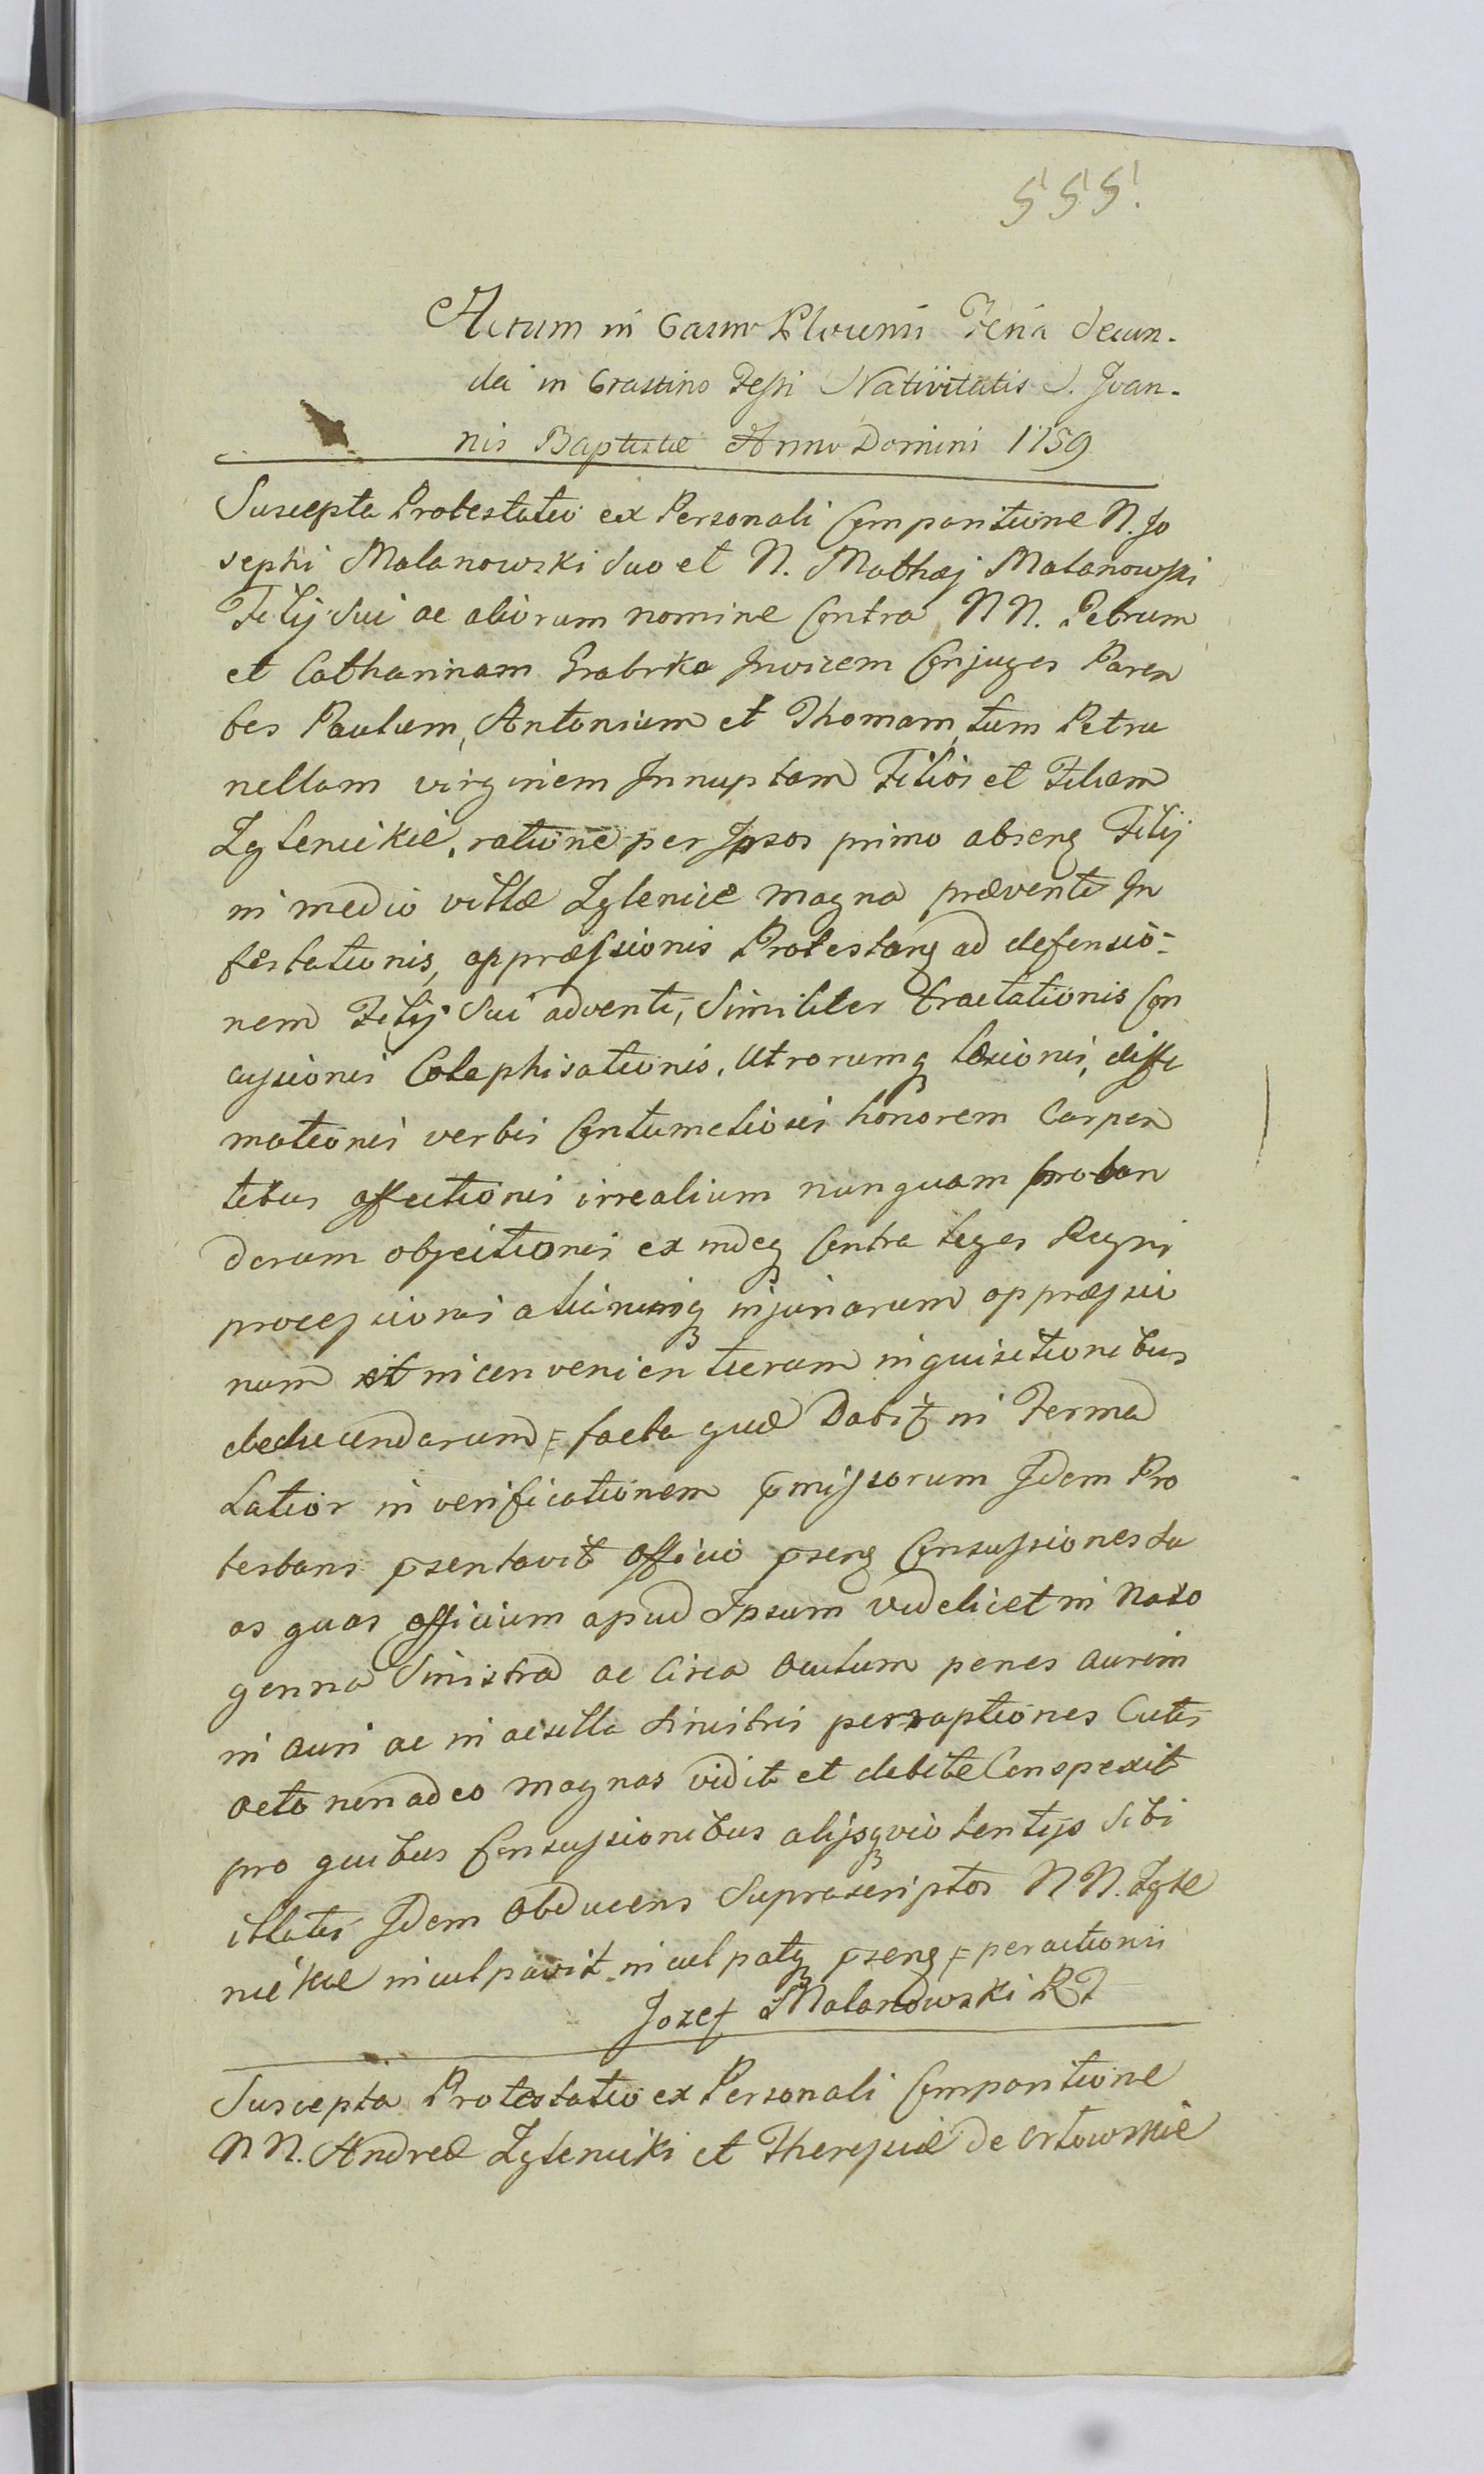 555.
Actum in Castro Plocensi Feria Secun-
da in Crastino Festi Nativitatis S. Joan-
nis Baptistæ Anno Domini 1759
Suscepta Protestatio ex Personali Comparitione N. Jo
sephi Malanowski suo et N. Mathæj Malanowski
Filij Sui ac aliorum nomine Contra NN. Petrum
et Catharinam Grabska Invicem Conjuges Paren
tes Paulum, Antonium et Thomam, tum Petro
nellam virginem Innuptam Filios et Filiam
Zglenickie, ratione per Ipsos primo absenq Filij
in medio villæ Zglenice magna præventi In
festationis, oppræssionis Protestanq ad defensio-
nem Filij Sui adventi, Similiter tractationis Con
cussionis Colaphisationis, Utrorumq læsionis, diffa
mationis verbis Contumeliosis honorem Carpen
tibus affectionis irrealium nunquam proban
darum objecitionis ex indeq Contra leges Regni
processionis aliarumq injuriarum oppræssio
num et inconvenientiarum inquisitionibus
deducendarum facta quæ Dabit in Forma
Latior in verificationem pmissorum Idem Pro
testans psentavit Officio psenq Concussiones su
as quas officium apud Ipsum videlicet in Naso
genna Sinistra ac Circa Oculum penes aurim
in auri ac in acsilla sinistris perraptiones Cutis
octo non adeo magnas vidit et debite Conspexit
pro quibus Concussionibus alijsq violentijs Sibi
illatis Idem Obducens Suprascriptos NN. Zgle
nickie inculpavit inculpatq psenq peractionis
Jozef Malanowski RP
Suscepta Protestatio ex Personali Comparitione
NN. Andreæ Zglenicki et Theressiæ de Orłowskie